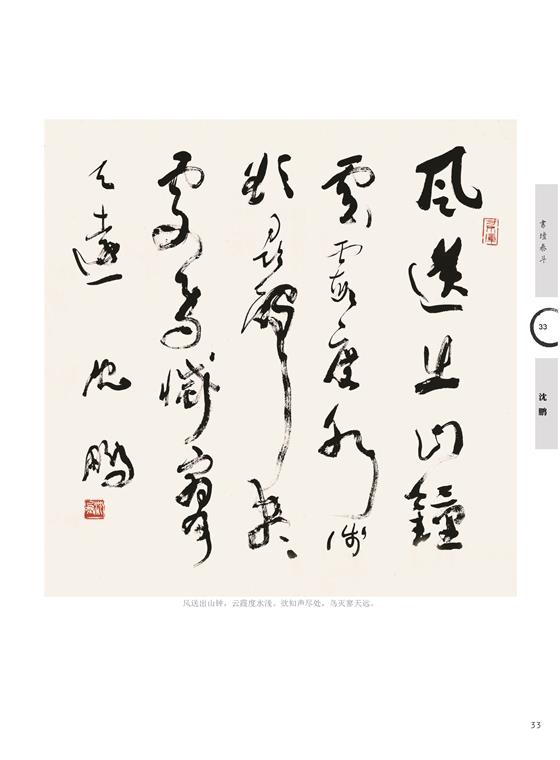 風送出山鐘
雲霞度水淺
欲知聲盡
處鳥滅寥
天遠
沈鵬
风送出山钟，云霞度水浅。欲知声尽处，鸟灭寥天远。
書壇泰斗
33
沈鹏
33